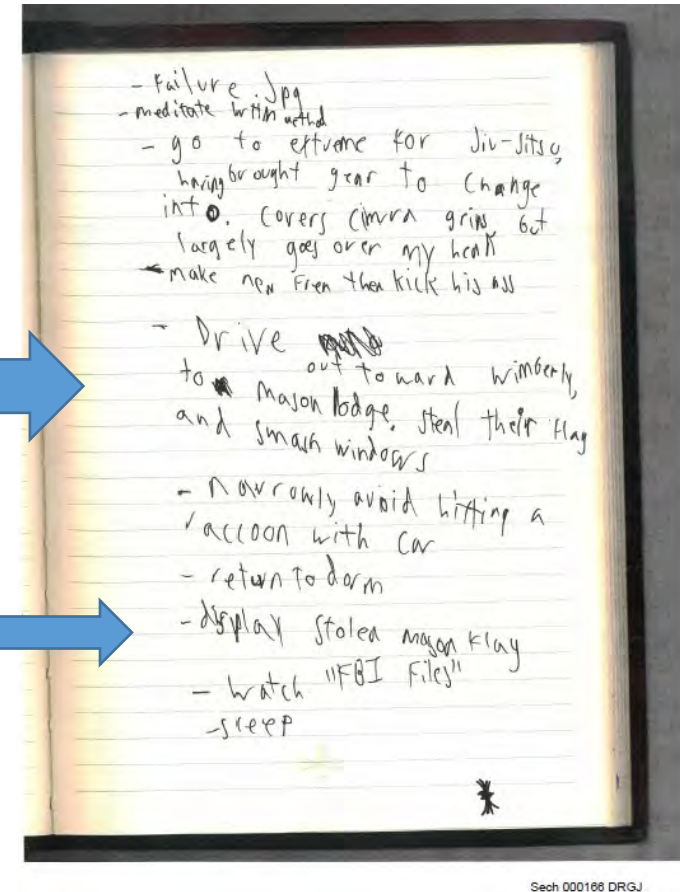 - Failure.jpg
- meditate method
- go to extreme for Jiu-Jitsu,
having brought gear to change
into. Covers grips but
largely goes over my head
- make new Fren then kick his ass
- Drive
out toward Wimberly,
to Mason lodge. Steal their flag
and smash windows
- Narrowly avoid hitting a
raccoon with car
- return to dorm
- display stolen mason flag
- watch "FBI Files"
- sleep
Sech 000166 DRGJ